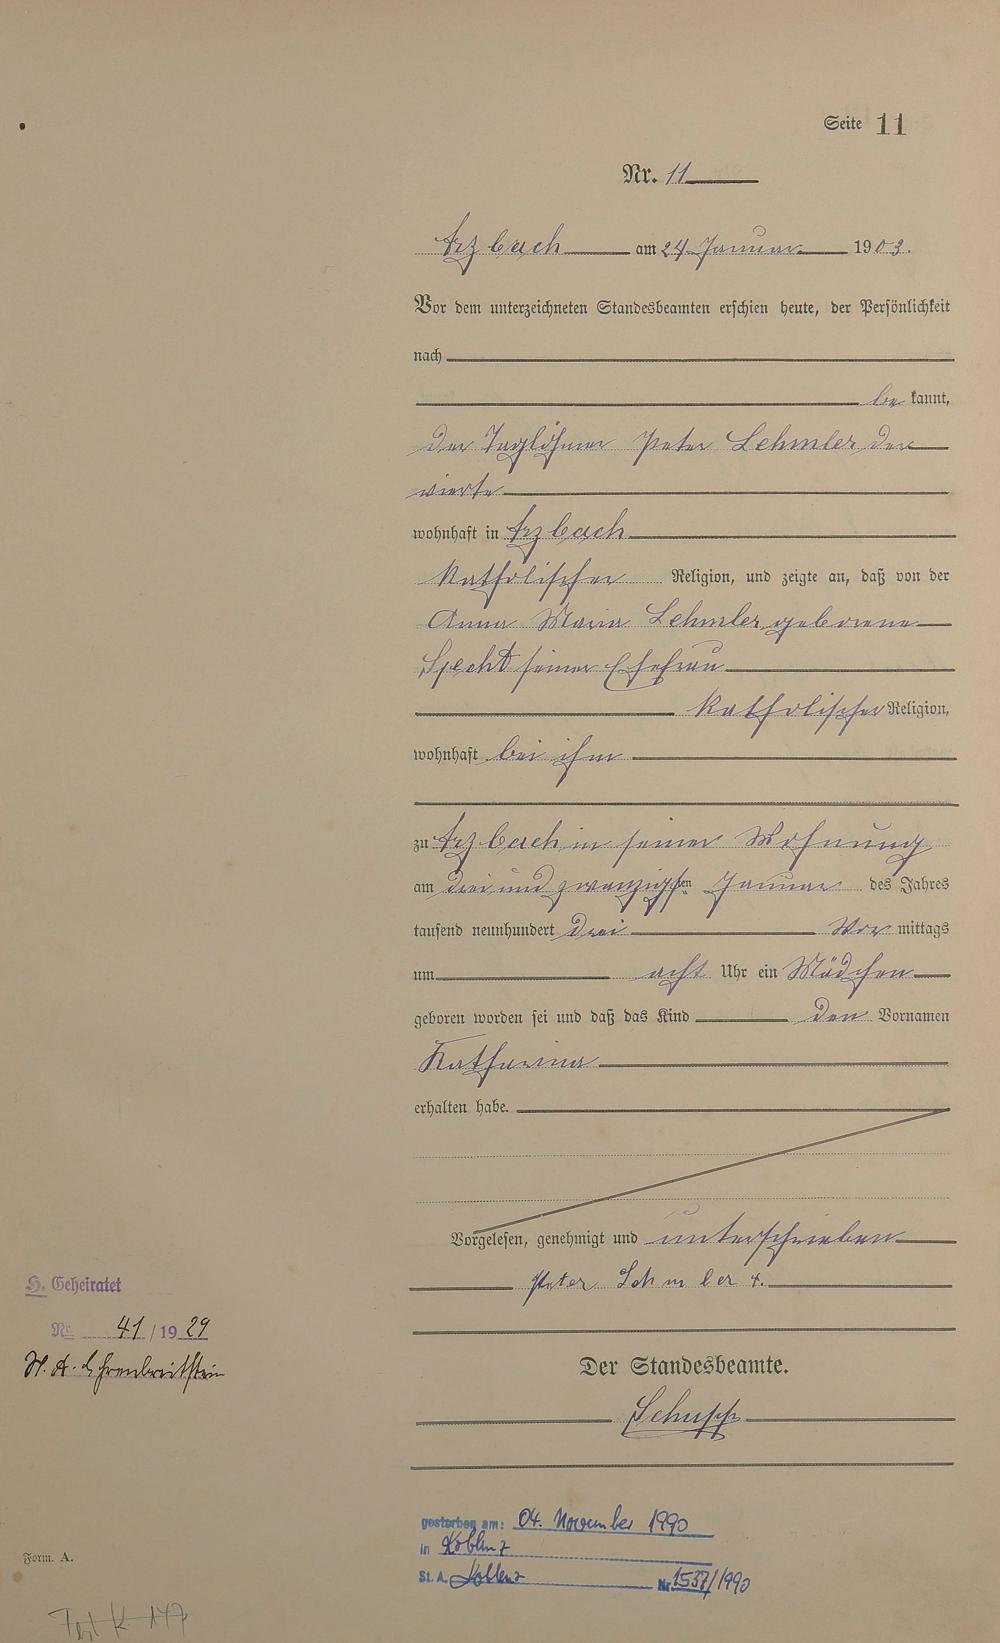 Seite 11
Nr. 11
Arzbach am 24 Januar 1903.
Vor dem unterzeichneten Standesbeamten erschien heute, der Persönlichkeit
nach
be kannt,
der Taglöhner Peter Lehmler der
vierte
wohnhaft in Arzbach
katholischer Religion, und zeigte an, daß von der
Anna Maria Lehmler geborene
Specht seiner Ehefrau
katholischer Religion,
wohnhaft bei ihm
zu Arzbach in seiner Wohnung
am drei und zwanzigsten Januar des Jahres
tausend neunhundert drei Vor mittags
um acht Uhr ein Mädchen
geboren worden sei und daß das Kind den Vornamen
Katharina
erhalten habe.
Vorgelesen, genehmigt und unterschrieben
Peter Lehmler 4.
Der Standesbeamte.
Schupp
H. Geheiratet
Nr. 41/1929
St. A. Ehrenbreitstein
gestorben am: 04. November 1990
in Koblenz
St. A. Koblenz Nr. 1537/1990
Form. A.